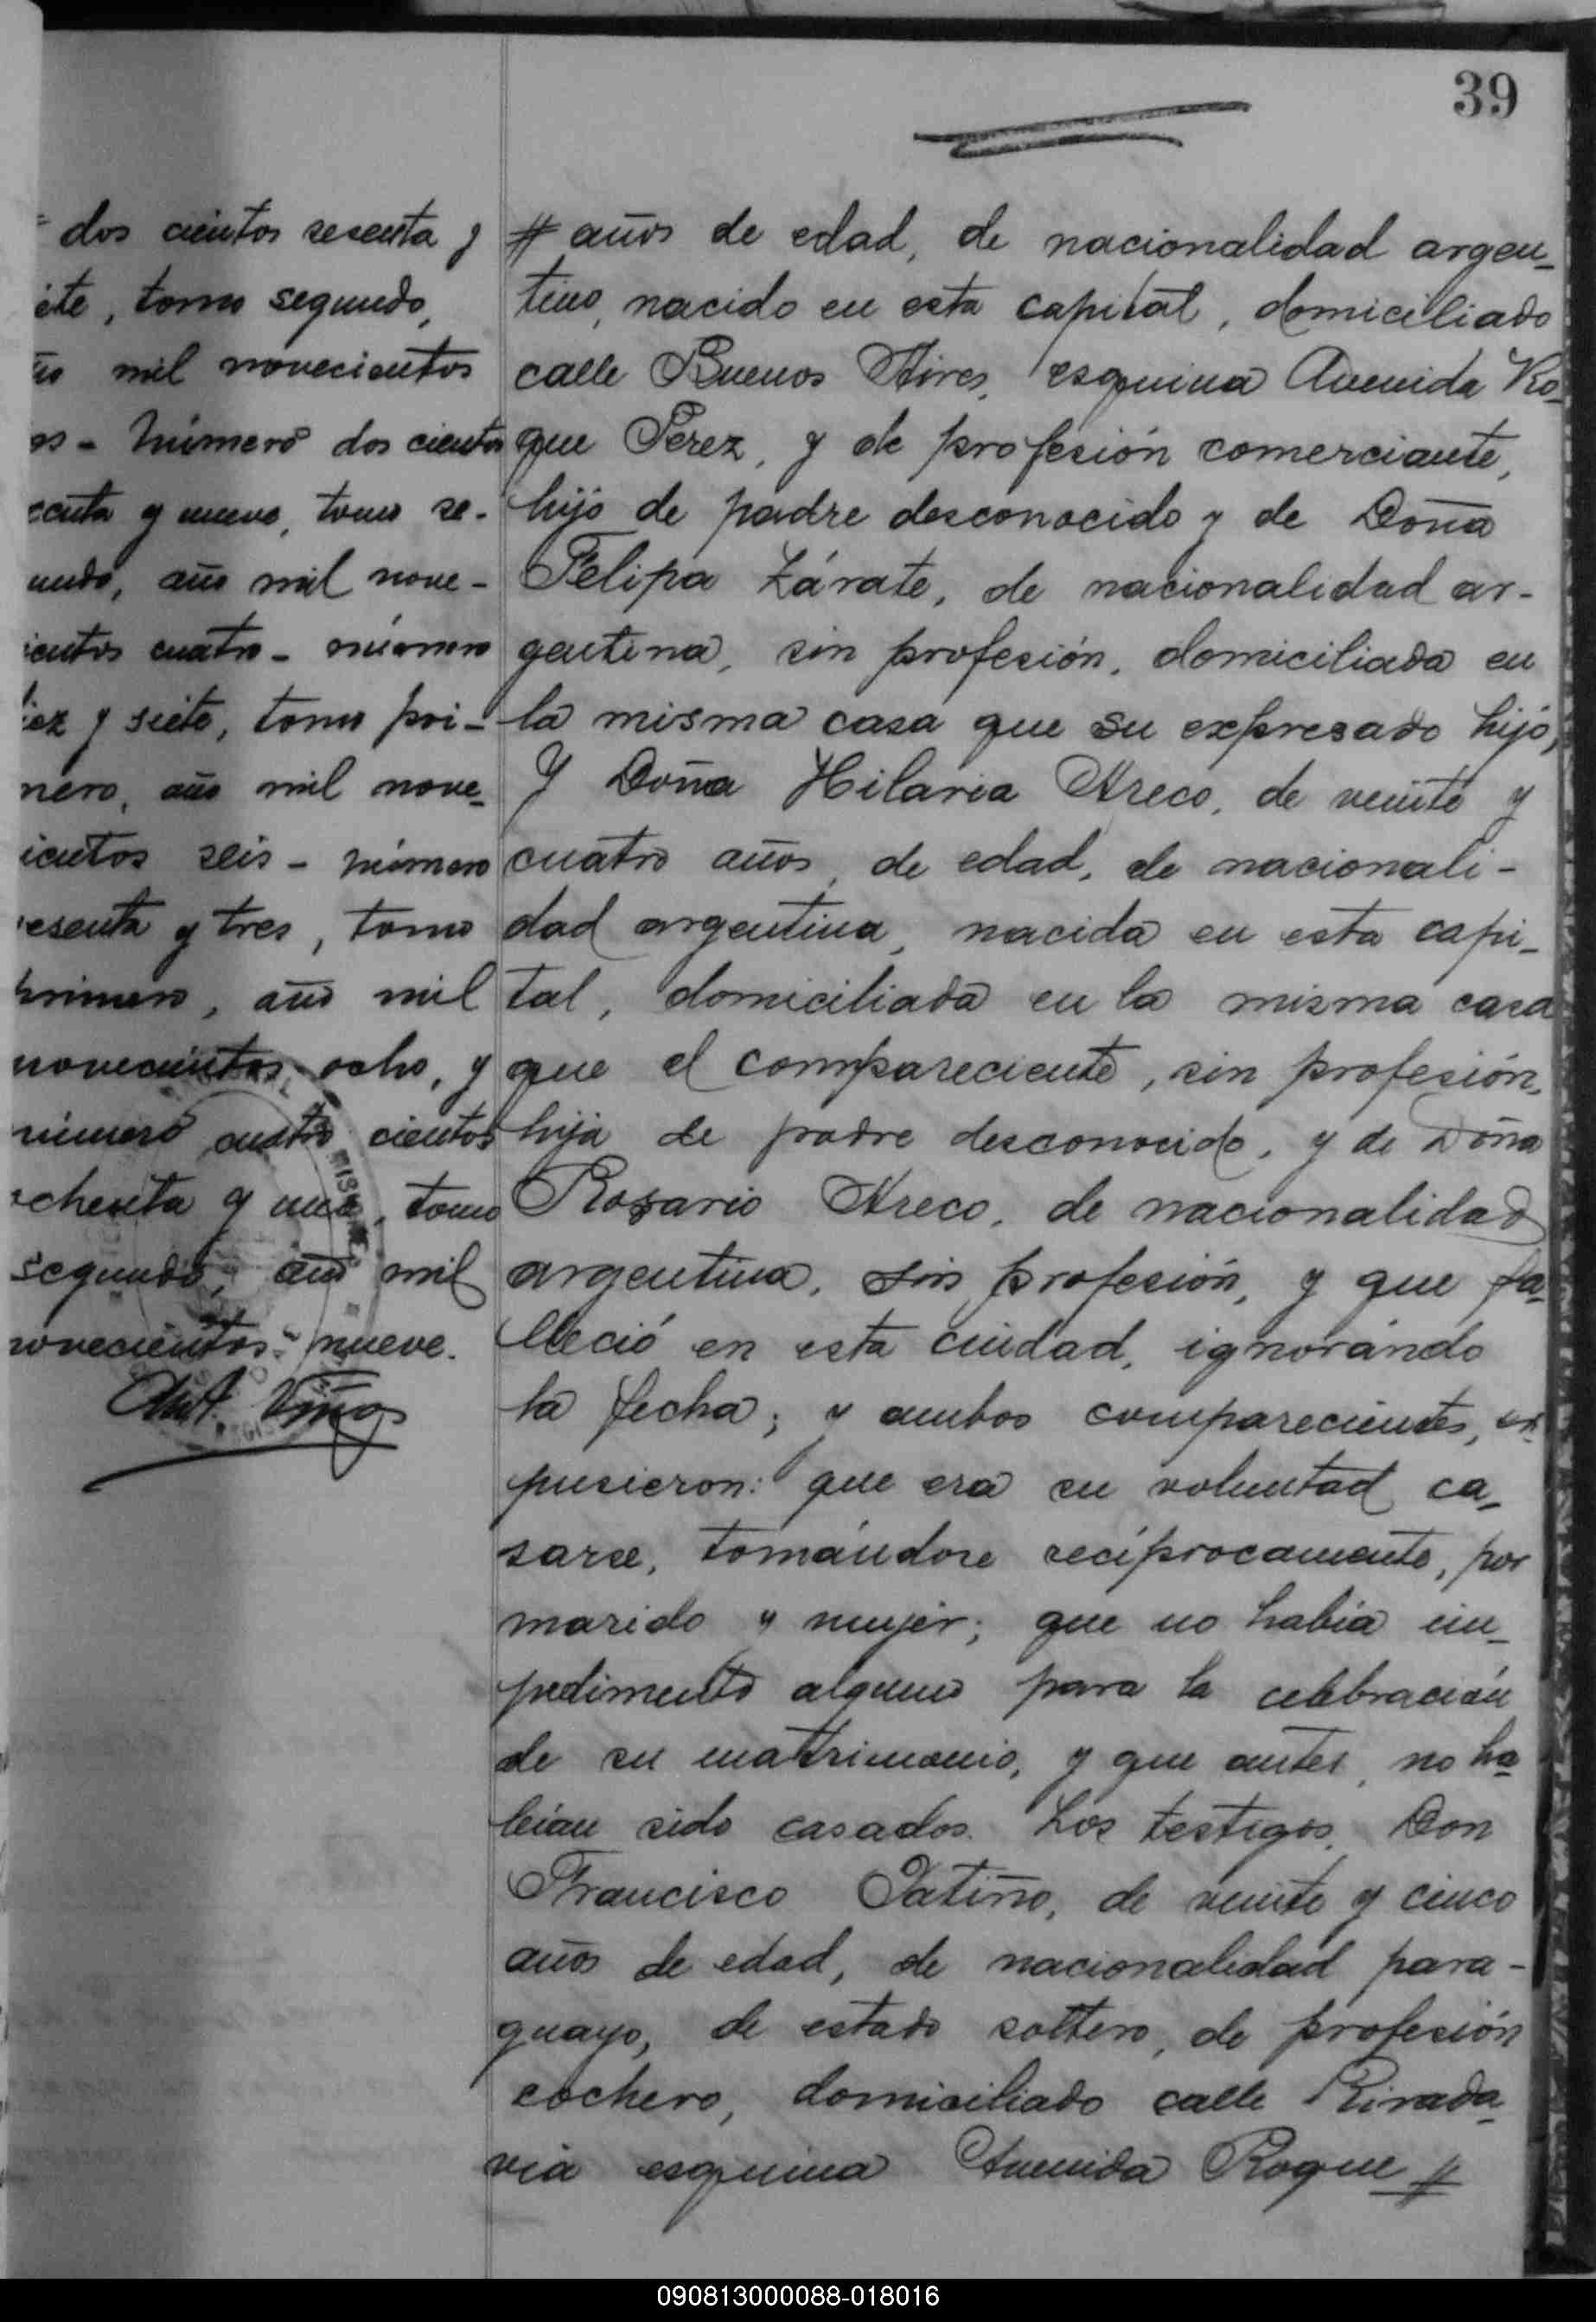 39
dos cientos sesenta y
ete, tomo segundo,
mil novecientos
os - Número dos cientos
centa y nueve, tomo se-
undo, año mil nove-
ientos cuatro - número
iez y siete, tomo pri-
mero, año mil nove-
ientos seis - número
esenta y tres, tomo
primero, año mil
novecientos ocho, y
número cuatro cientos
ochenta y uno, tomo
segundo, año mil
novecientos nueve.
# años de edad, de nacionalidad argen-
tino, nacido en esta capital, domiciliado
calle Buenos Aires, esquina Avenida Ro-
que Perez, y de profesión comerciante,
hijo de padre desconocido y de Doña
Felipa Zárate, de nacionalidad ar-
gentina, sin profesión, domiciliada en
la misma casa que su expresado hijo,
Y Doña Hilaria Areco, de veinte y
cuatro años de edad, de nacionali-
dad argentina, nacida en esta capi-
tal, domiciliada en la misma casa
que el compareciente, sin profesión,
hija de padre desconocido, y de Doña
Rosario Areco, de nacionalidad
argentina, sin profesión, y que fa-
lleció en esta ciudad, ignorándo
la fecha; y ambos comparecientes, ex-
pusieron: que era su voluntad ca-
sarse, tomándose recíprocamente, por
marido y mujer; que no había im-
pedimento alguno para la celebración
de su matrimonio, y que antes, no ha-
bían sido casados. Los testigos, Don
Francisco Patiño, de veinte y cinco
años de edad, de nacionalidad para-
guayo, de estado soltero, de profesión
cochero, domiciliado calle Rivada-
via esquina Avenida Roque #
090813000088-018016